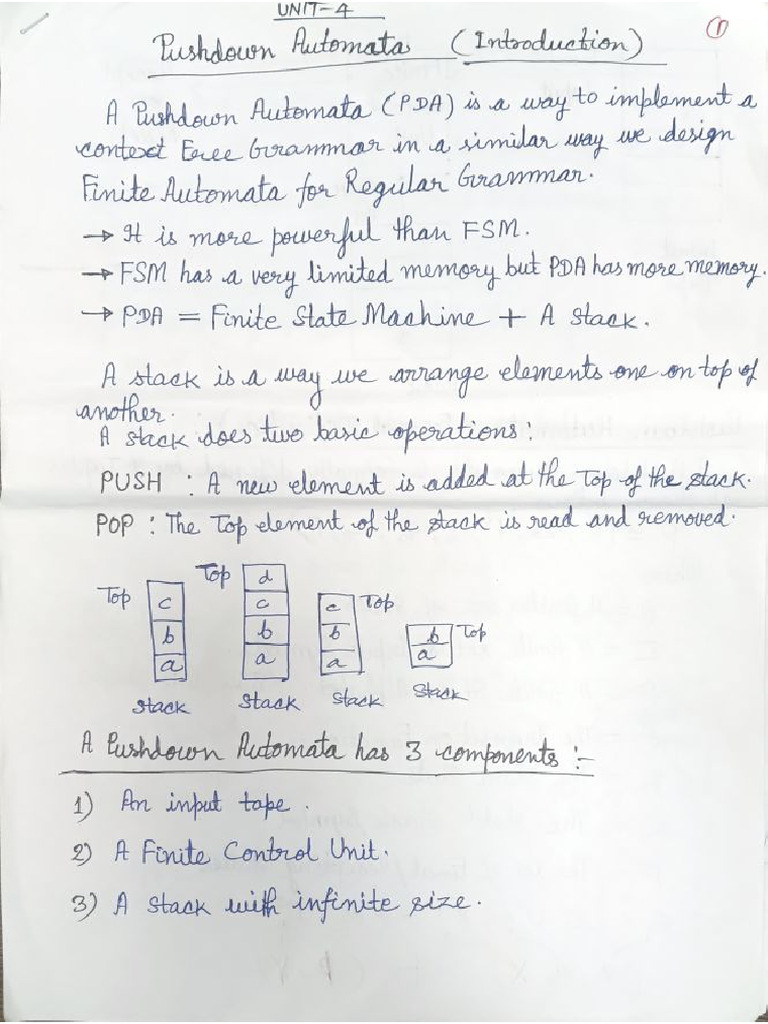 UNIT-4
1
Pushdown Automata (Introduction)
A Pushdown Automata (PDA) is a way to implement a
context Free Grammar in a similar way we design
Finite Automata for Regular Grammar.
→ It is more powerful than FSM.
→ FSM has a very limited memory but PDA has more memory.
→ PDA = Finite State Machine + A Stack.
A stack is a way we arrange elements one on top of
another.
A stack does two basic operations:
PUSH : A new element is added at the Top of the stack.
POP : The Top element of the stack is read and removed.
Top c b a stack
Top d c b a stack
c Top b a stack
b Top a stack
A Pushdown Automata has 3 components :-
1) An input tape.
2) A Finite Control Unit.
3) A stack with infinite size.